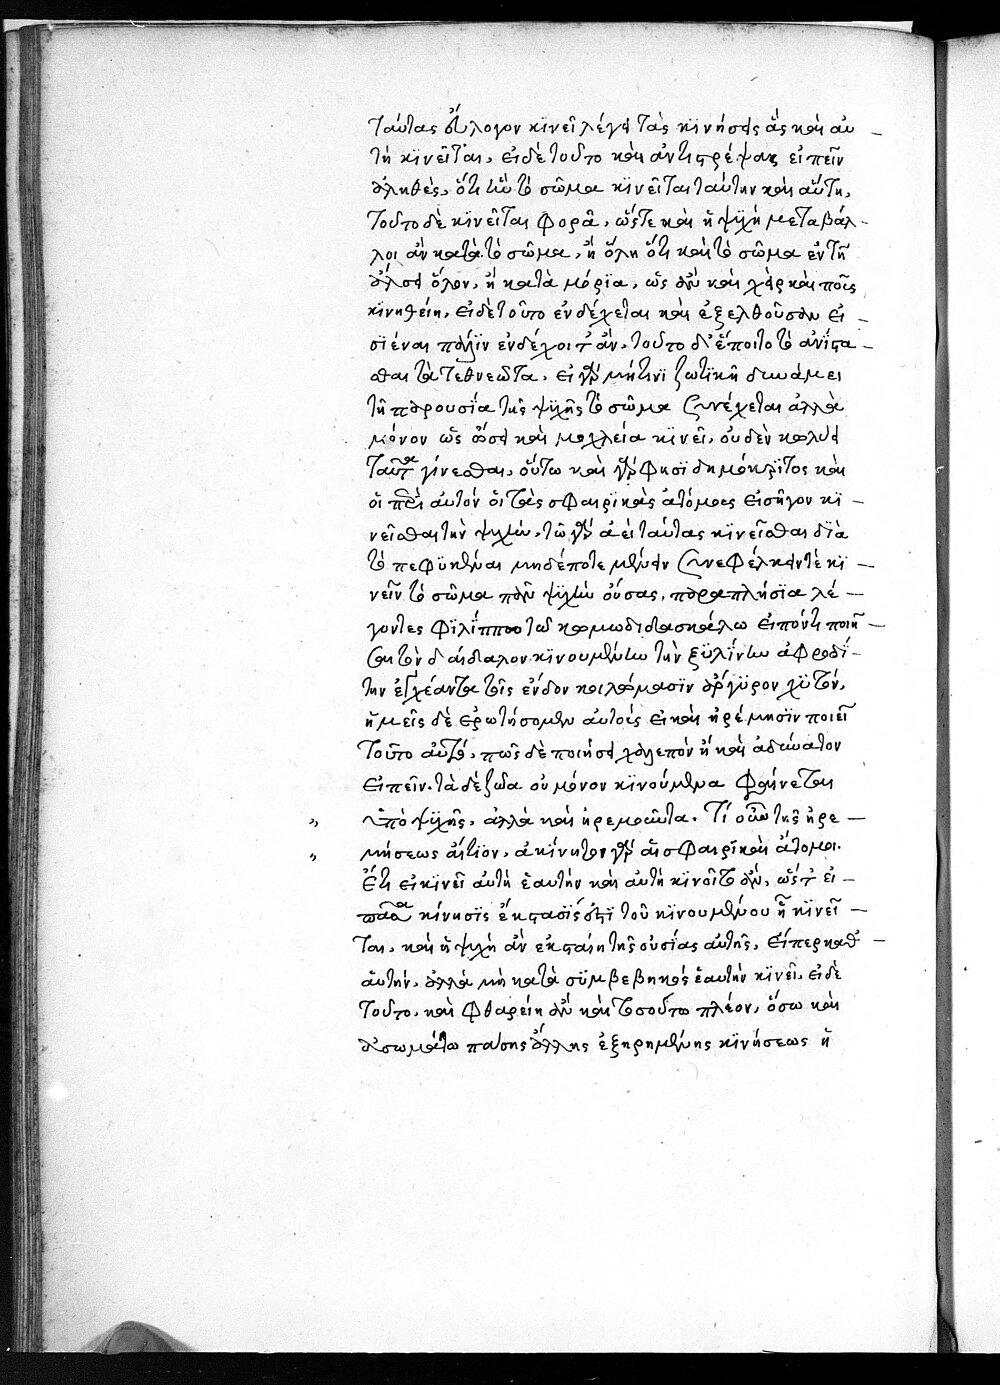 ταύτας εὔλογον κινεῖ λέγειν τὰς κινήσεις ἃς καὶ αὐ
τὴ κινεῖται, εἰ δὲ τοῦτο καὶ ἀντιστρέψασιν εἰπεῖν
ἀληθὲς, ὅτι ἣν τὸ σῶμα κινεῖται ταύτην καὶ αὕτη,
τοῦτο δὲ κινεῖται φορᾷ, ὥστε καὶ ἡ ψυχὴ μεταβάλ
λοι ἂν κατὰ τὸ σῶμα, ἢ ὅλη ὅτι καὶ τὸ σῶμα ἐν τῇ
ἅλσει ὅλον, ἢ κατὰ μόρια, ὡς ἂν καὶ χεὶρ καὶ ποῦς
κινηθείη, εἰ δὲ τοῦτο ἐνδέχεται καὶ ἐξελθοῦσαν εἰ
σιέναι πάλιν ἐνδέχοιτ ἂν, τούτο δ' ἕποιτο τὸ ἀνίστα
σθαι τὰ τεθνεῶτα, εἰ γὰρ μή τινι ζωτικῇ δυνάμει
τῇ παρουσίᾳ τῆς ψυχῆς τὸ σῶμα συνέχεται ἀλλὰ
μόνον ὡς ὤσει καὶ μοχλεία κινεῖ, οὐδὲν κωλύει
ταῦτα γίνεσθαι, οὕτω καὶ γάρ φησι δημόκριτος καὶ
οἱ περὶ αὐτόν οἱ τὰς σφαιρικὰς ἀτόμους εἰσῆγον κι
νεῖσθαι τὴν ψυχὴν, τῷ γὰρ ἀεὶ ταύτας κινεῖσθαι διὰ
τὸ πεφυκέναι μηδέποτε μένειν συνεφέλκειν τὲ κι
νεῖν τὸ σῶμα πᾶν ψυχὴν οὔσας, παραπλήσια λέ
γοντες φιλίππω τῶ κωμωδιδασκάλω εἰπόντι ποιῆ
σαι τὸν δαίδαλον κινουμένην τὴν ξυλίνην ἀφροδί
την ἐγχέαντα τοῖς ἔνδον κοιλώμασιν ἀργυρον χυτόν,
ἡμεῖς δὲ ἐρωτήσομεν αὐτούς εἰ καὶ ἠρέμησιν ποιεῖ
τοῦτο αὐτό, πῶς δὲ ποιήσει χαλεπὸν ἢ καὶ ἀδύνατον
εἰπεῖν. τὰ δὲ ζῶα οὐ μόνον κινούμενα φαίνεται
ὑπὸ ψυχῆς, ἀλλὰ καὶ ἠρεμοῦντα. Τί οὖν τῆς ἠρε
μήσεως αἴτιον, ἀκίνητοι γὰρ αἱ σφαιρικαὶ ἄτομοι.
Ἔτι εἰ κινεῖ αὐτὴ ἑαυτὴν καὶ αὐτὴ κινοῖτο ἂν, ὥστ εἰ
πᾶσα κίνησις ἔκστασίς ἐστι τοῦ κινουμένου ἧ κινεῖ
ται, καὶ ἡ ψυχὴ ἂν ἐκσταίη τῆς οὐσίας αὐτῆς, εἴπερ καθ
αὑτήν, ἀλλὰ μὴ κατὰ συμβεβηκός ἑαυτὴν κινεῖ, εἰ δὲ
τοῦτο, καὶ φθαρείη ἂν καὶ τοσούτω πλέον, ὅσω καὶ
ἀσωμάτω πάσης ἄλλης ἐξηρημένης κινήσεως ἡ